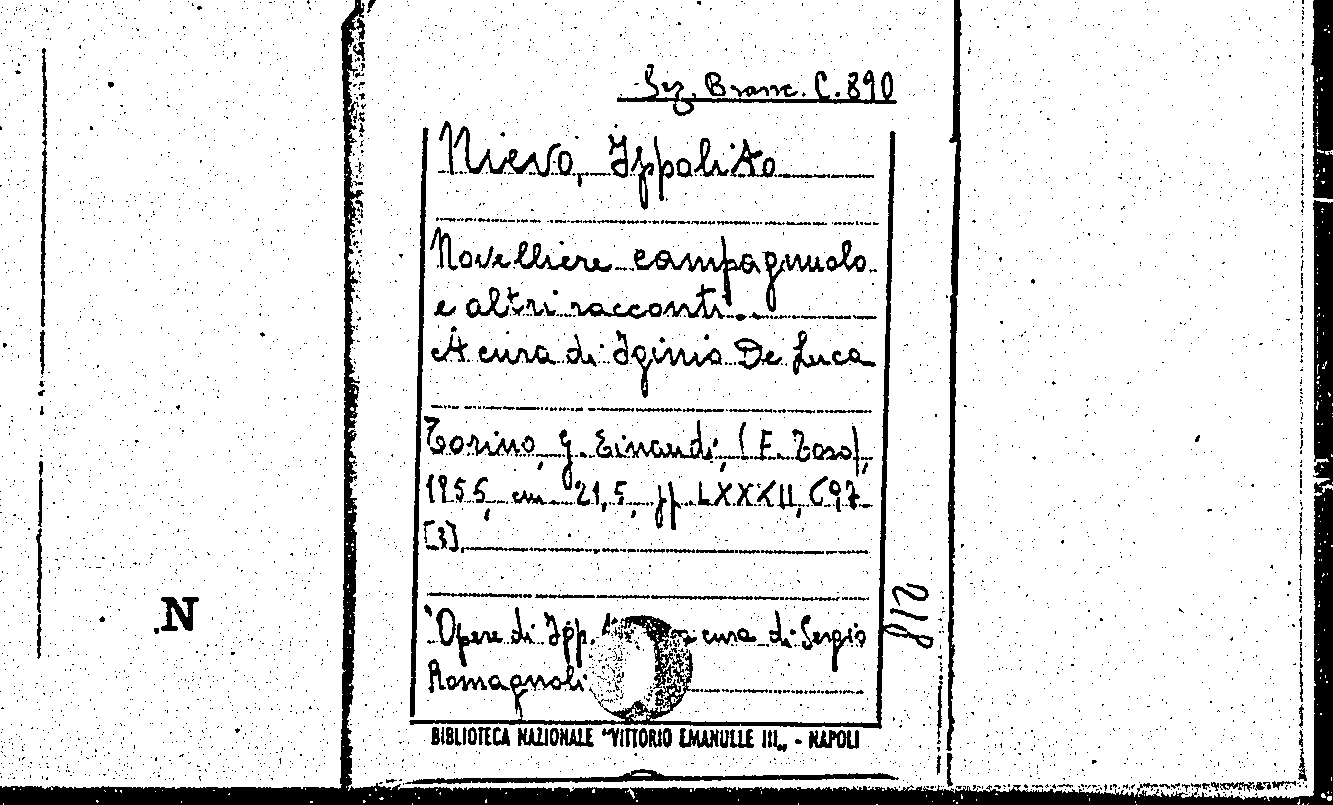 Sez. Branc. C. 890
Nievo, Ippolito
Novelliere campagnuolo
e altri racconti.
A cura di Iginio De Luca
Torino, G. Einaudi, (F. Toso),
1955, cm. 21,5, pp. LXXXII, 697
[3].
Opere di Ipp. a cura di Sergio
Romagnoli
812
N
BIBLIOTECA NAZIONALE "VITTORIO EMANUELE III„ - NAPOLI